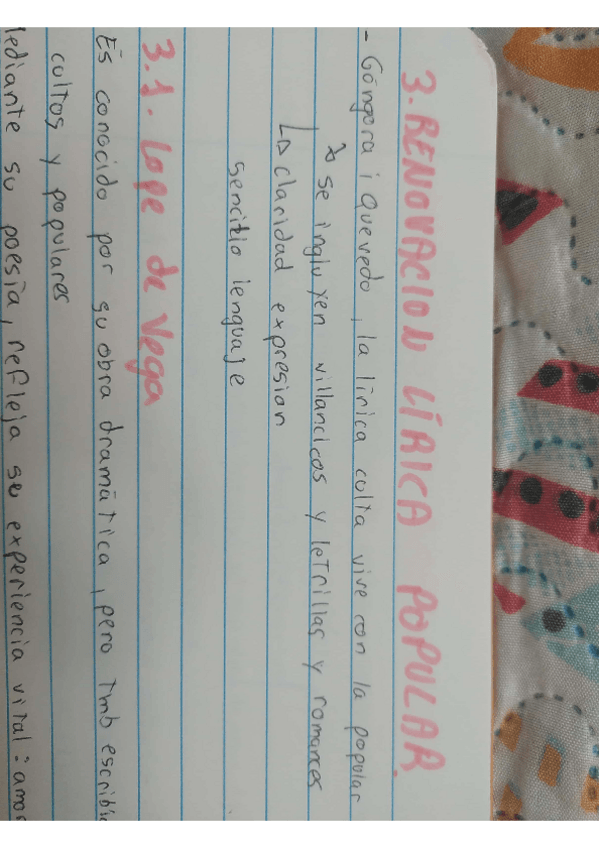 3. RENOVACION LÍRICA POPULAR.
- Góngora i Quevedo, la lírica culta vive con la popular
↳ se ingluyen villancicos y letrillas y romances
↳ claridad expresion
sencillo lenguaje
3.1. Lope de Vega
Es conocido por su obra dramática, pero tmb escribi
cultos y populares
Mediante su poesía, refleja su experiencia vital: amor